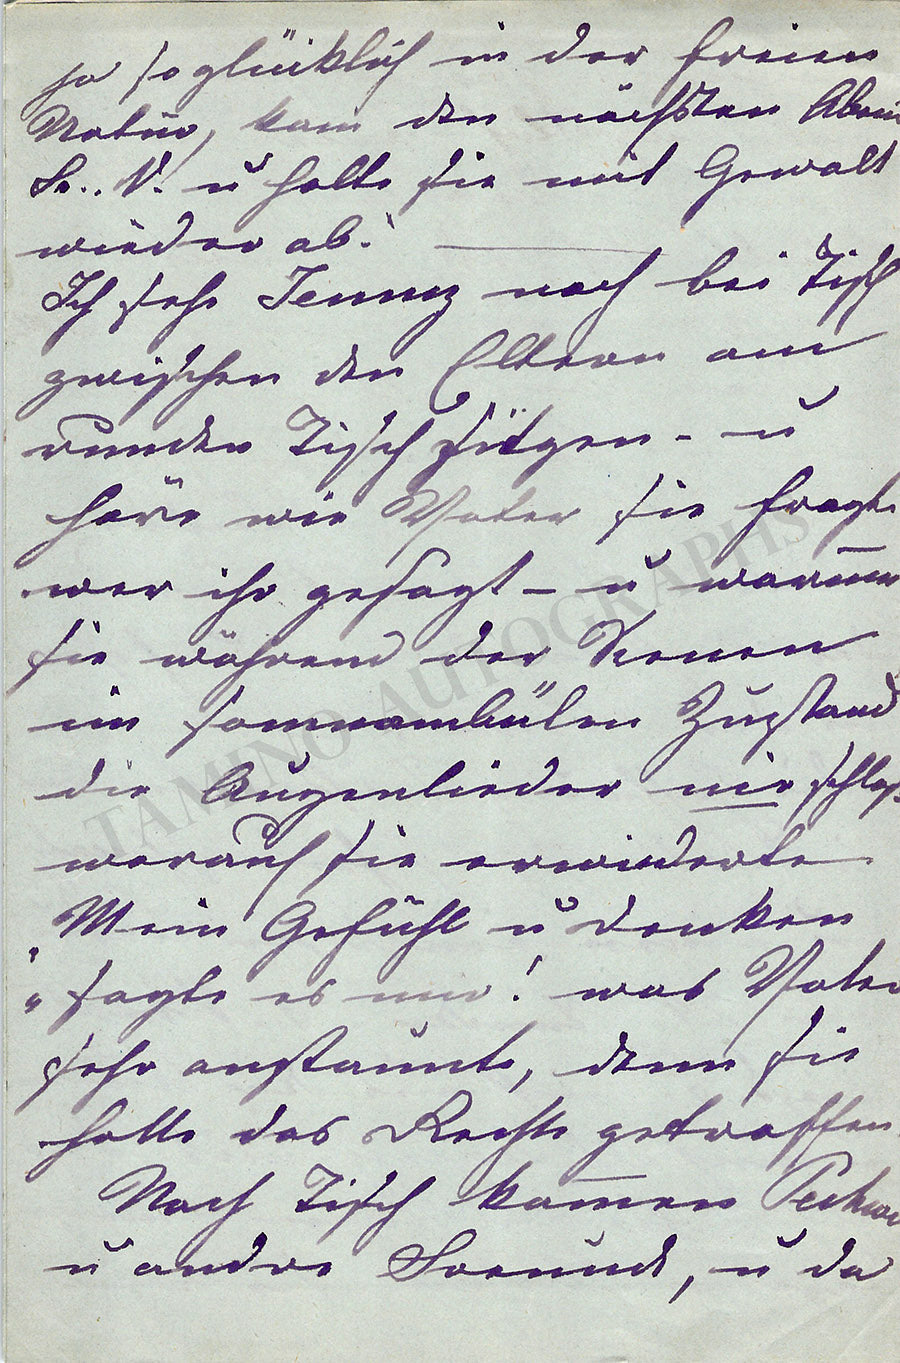 so so glücklich in der freien
Natur, kam den nächsten Aben
Fr. V. u holte sie mit Gewalt
wieder ab!
Ich sehe Jenny noch bei Tisch
zwischen den Eltern am
runden Tisch sitzen - u
höre wie Vater sie fragte
wer ihr gesagt - u warum
sie während der Scenen
im somnambülen Zustand
die Augenlieder nie schloß
worauf sie erwiederte
"Mein Gefühl u denken
"sagte es mir! was Vater
sehr anstaunte, denn sie
hatte das Rechte getroffen.
Nach Tisch kamen
u andre Freunde, u da
TAMINO AUTOGRAPHS